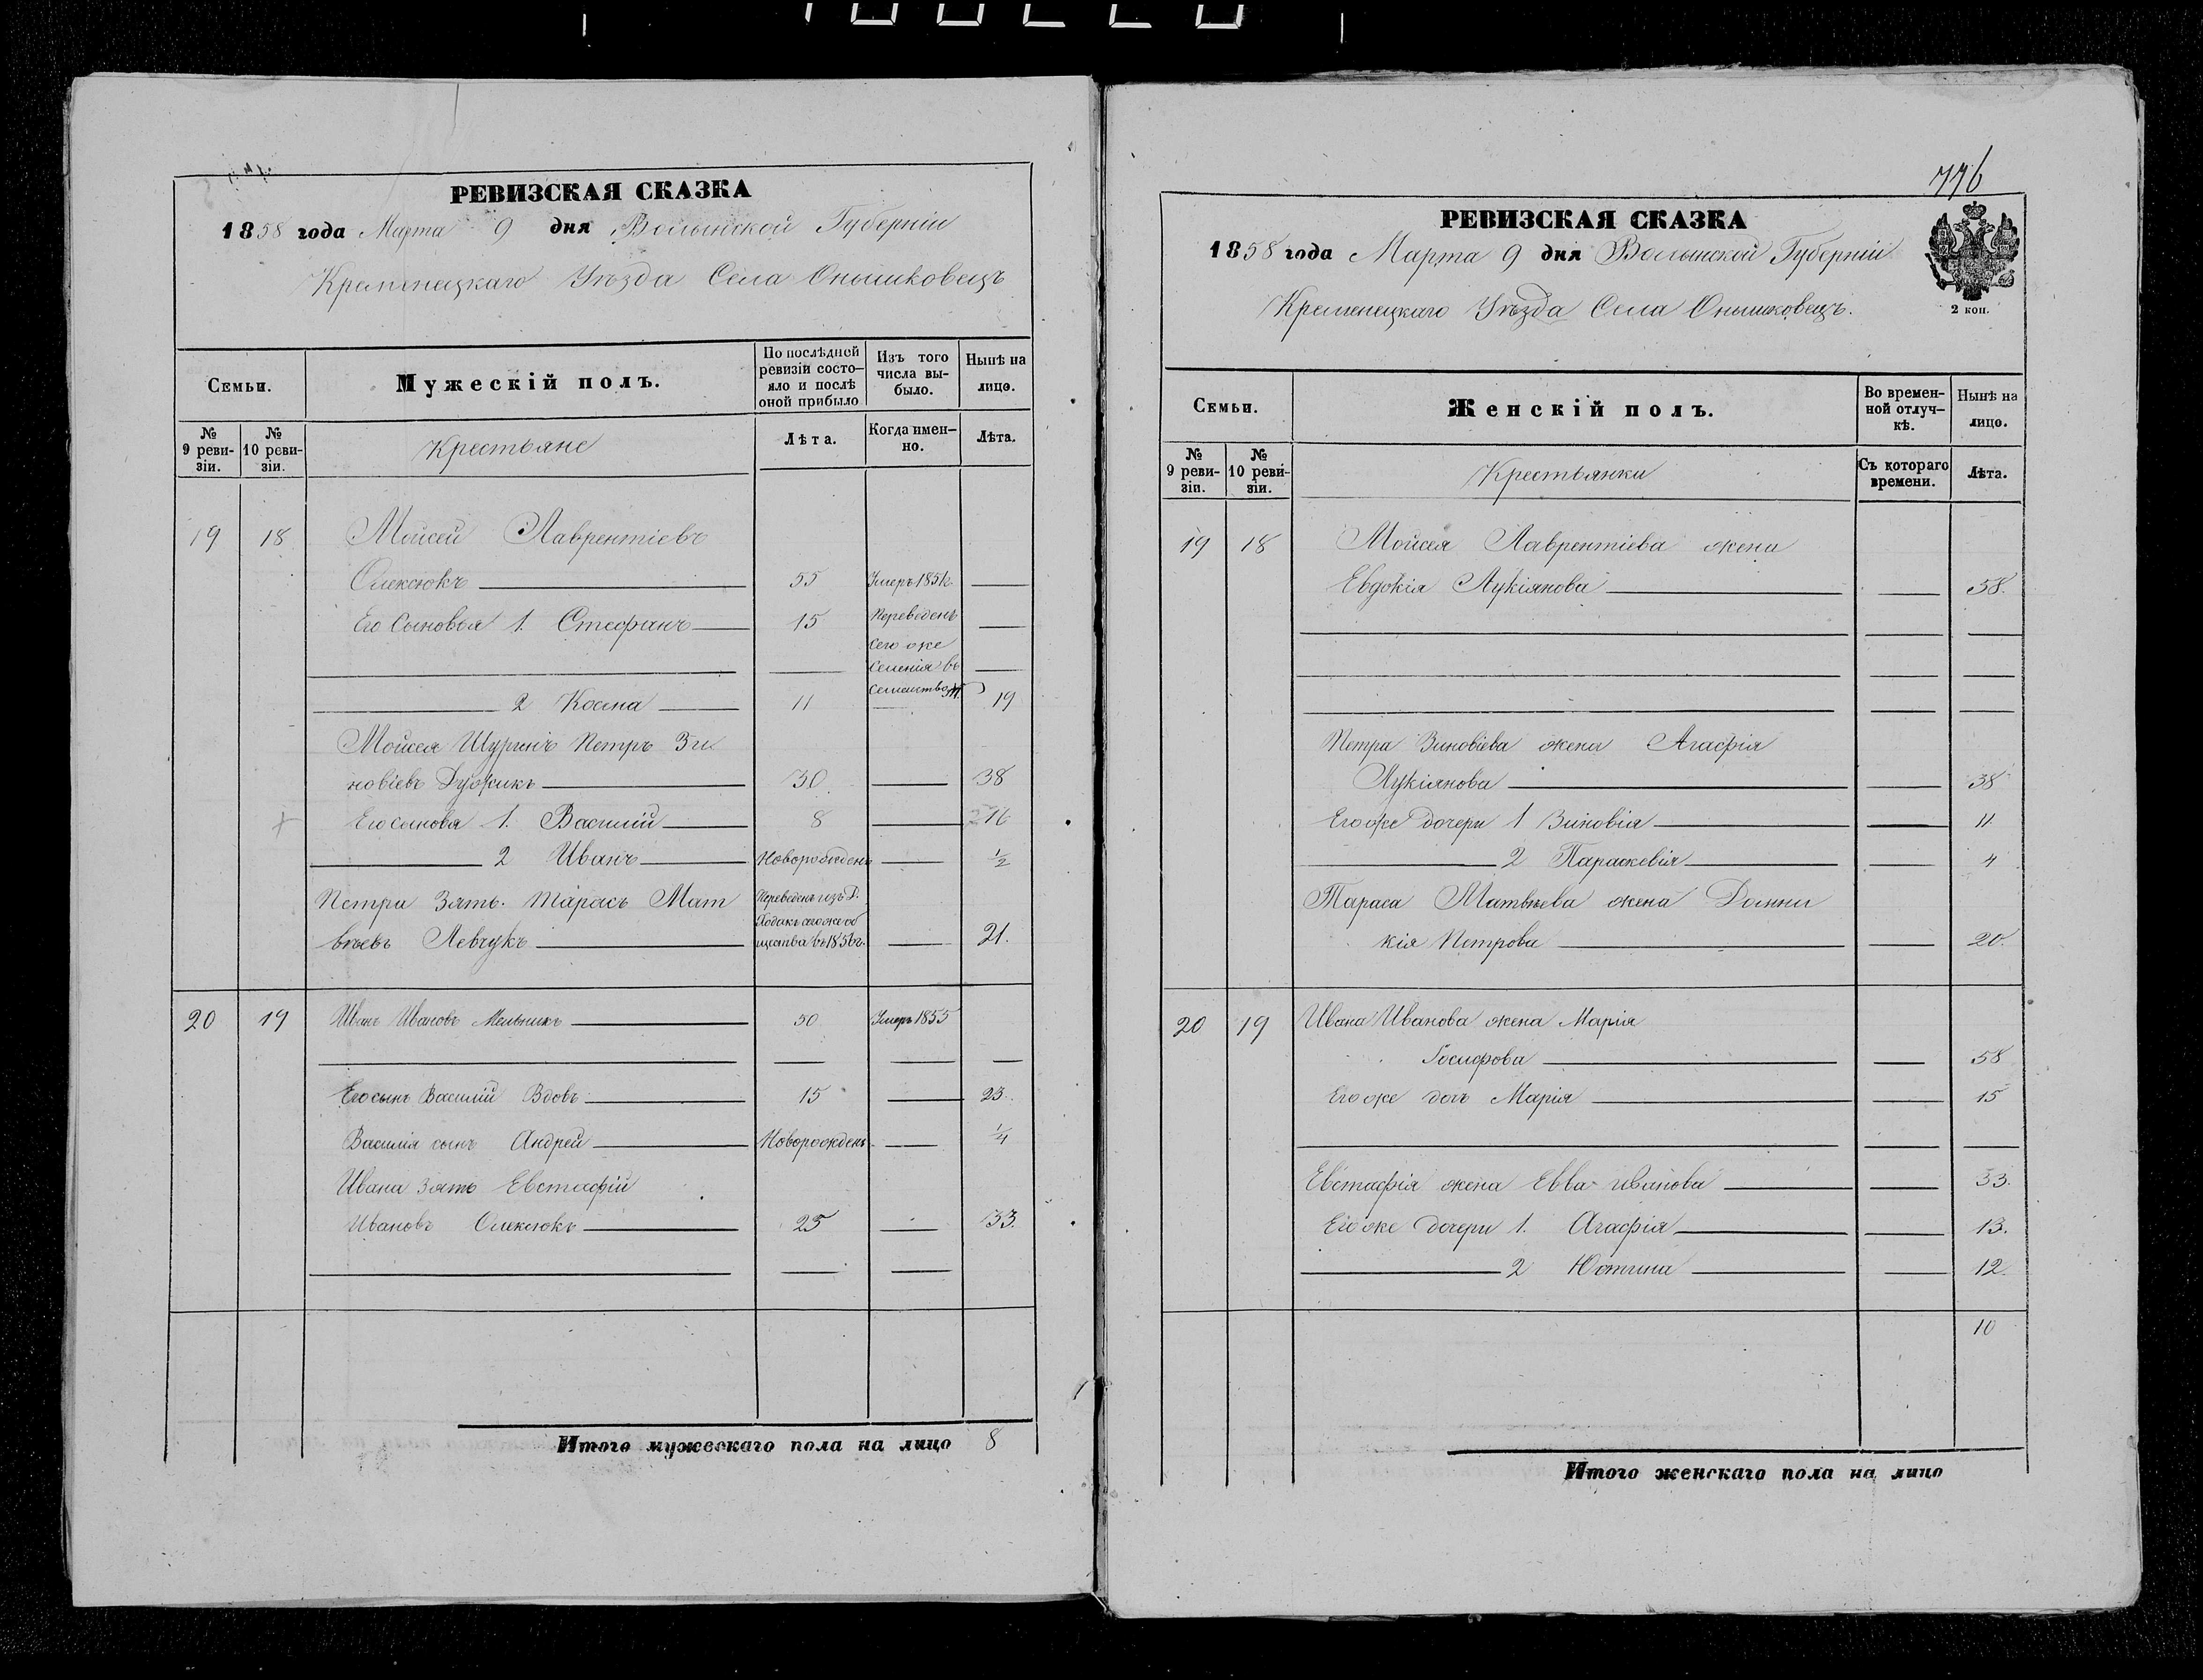 РЕВИЗСКАЯ СКАЗКА
1858 года Марта 9 дня Волынской Губерніи
Кременецкаго Уѣзда Села Онышковецъ
Семьи.
Мужескій полъ.
По послѣдней ревизіи состо-яло и послѣ оной прибыло
Изъ того числа вы-было.
Нынѣ на лицо.
№ 9 реви-зіи.
№ 10 реви-зіи.
Крестьяне
Лѣта.
Когда имен-но.
Лѣта.
19 18 Мойсей Лаврентіевъ
Олексюкъ 55 Умеръ 1851г.
Его Сыновья 1. Стефанъ 15 Переведенъ
сего же
селенія въ
семейство
2 Косма 11 19
Мойсея Шуринъ Петръ Зи
новіевъ 30. 38
Его сыновя 1. Василій 8 16
2 Иванъ Новорожденъ ½
Петра Зять Тарасъ Мат Переведенъ изъ Д.
сего же об
вѣевъ Левчукъ щества въ 1856г. 21.
20 19 Иванъ Ивановъ Мельникъ 50 Умеръ 1855
Его сынъ Василій Вдовъ 15 23.
Василія сынъ Андрей Новорожденъ ¼
Ивана зять Евстафій
Ивановъ Олексюкъ 25 33.
Итого мужескаго пола на лицо 8
776
РЕВИЗСКАЯ СКАЗКА
1858 года Марта 9 дня Волынской Губерніи
Кременецкаго Уѣзда Села Онышковецъ.
2 коп.
Семьи.
Женскій полъ.
Во времен-ной отлуч-кѣ.
Нынѣ на лицо.
№ 9 реви-зіи.
№ 10 реви-зіи.
Крестьянки
Съ котораго времени.
Лѣта.
19 18 Мойсея Лаврентіева жена
Евдокія Лукіянова 58.
Петра Зиновіева жена Агафія
Лукіянова 38
Его же дочери 1 Зиновія 11
2 Параскевія 4
Тараса Матвѣева жена Домни
кія Петрова 20.
20 19 Ивана Иванова жена Марія
Іосифова 58
Его же дочь Марія 15
Евстафія жена Евва Иванова 33.
Его же дочери 1. Агафія 13.
2 Юстина 12.
10
Итого женскаго пола на лицо